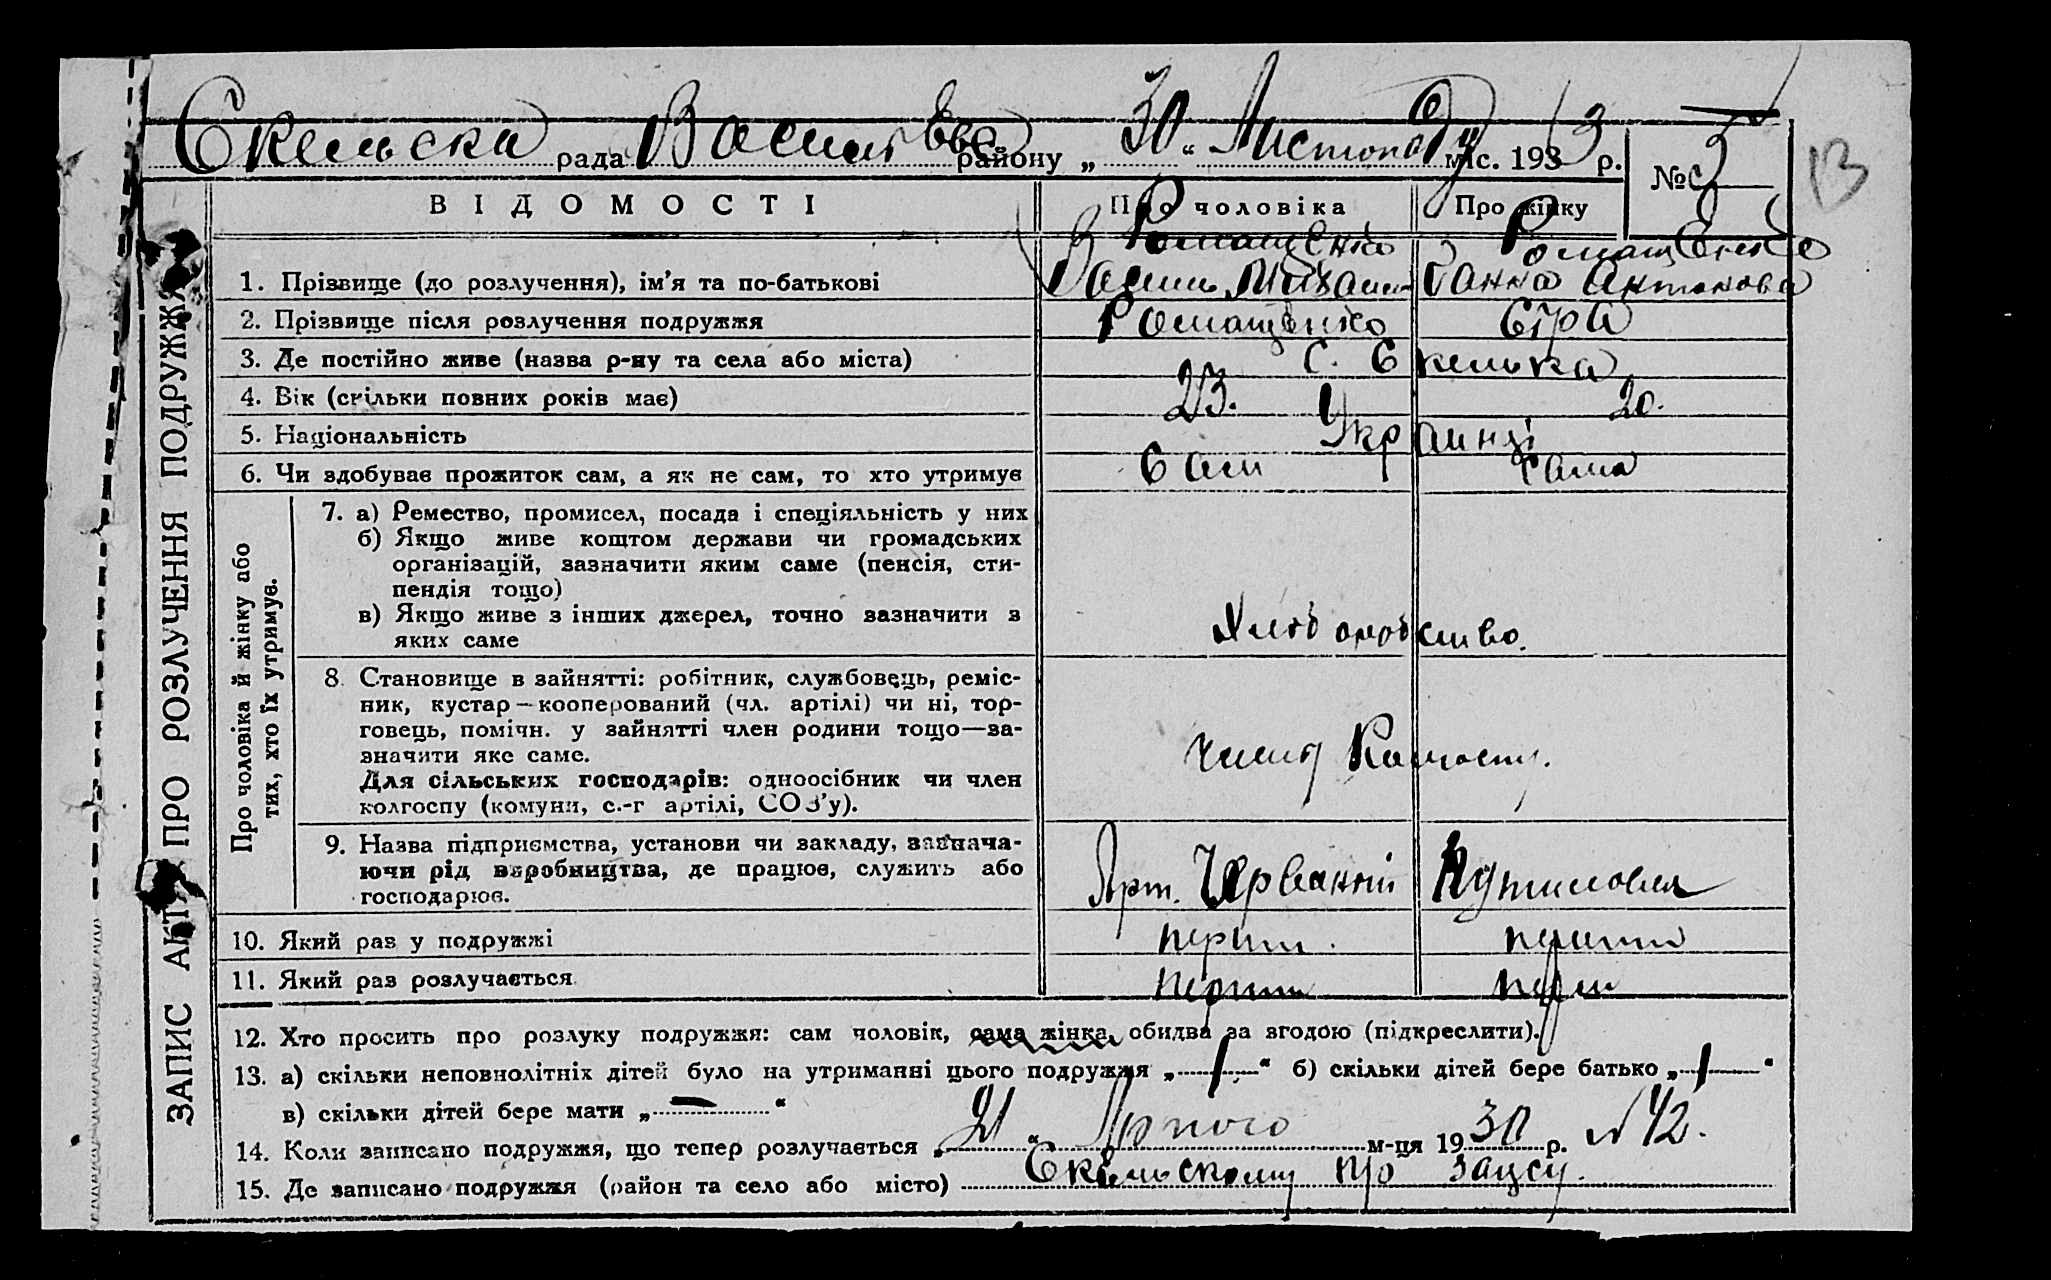 Скельска рада Василівс району „30“ Листопаду міс. 1933 р. №3
13
ЗАПИС АКТА ПРО РОЗЛУЧЕННЯ ПОДРУЖЖЯ
ВІДОМОСТІ Про чоловіка Про жінку
Ромащенко Ромащенко
1. Прізвище (до розлучення), ім'я та по-батькові Ганна Антонова
2. Прізвище після розлучення подружжя Ромащенко Сіра
3. Де постійно живе (назва р-ну та села або міста) С. Скелька
4. Вік (скільки повних років має) 23. 20.
5. Національність Українці
6. Чи здобуває прожиток сам, а як не сам, то хто утримує Сам Сама
Про чоловіка й жінку або тих, хто їх утримує.
7. а) Ремество, промисел, посада і спеціяльність у них
б) Якщо живе коштом держави чи громадських
організацій, зазначити яким саме (пенсія, сти-
пендія тощо)
в) Якщо живе з інших джерел, точно зазначити з
яких саме
8. Становище в зайнятті: робітник, службовець, реміс-
ник, кустар—кооперований (чл. артілі) чи ні, тор-
говець, помічн. у зайнятті член родини тощо—за-
значити яке саме.
Для сільських господарів: одноосібник чи член
колгоспу (комуни, с.-г артілі, СОЗ'у).
9. Назва підприємства, установи чи закладу, зазнача-
ючи рід виробництва, де працює, служить або
господарює.
Арт. Червоний
10. Який раз у подружжі перши
11. Який раз розлучається перши
12. Хто просить про розлуку подружжя: сам чоловік, сама жінка, обидва за згодою (підкреслити).
13. а) скільки неповнолітніх дітей було на утриманні цього подружжя „1“ б) скільки дітей бере батько „1“
в) скільки дітей бере мати „—“
14. Коли записано подружжя, що тепер розлучається „21“ м-ця 1930 р. №42.
15. Де записано подружжя (район та село або місто) Скельському зацсу.